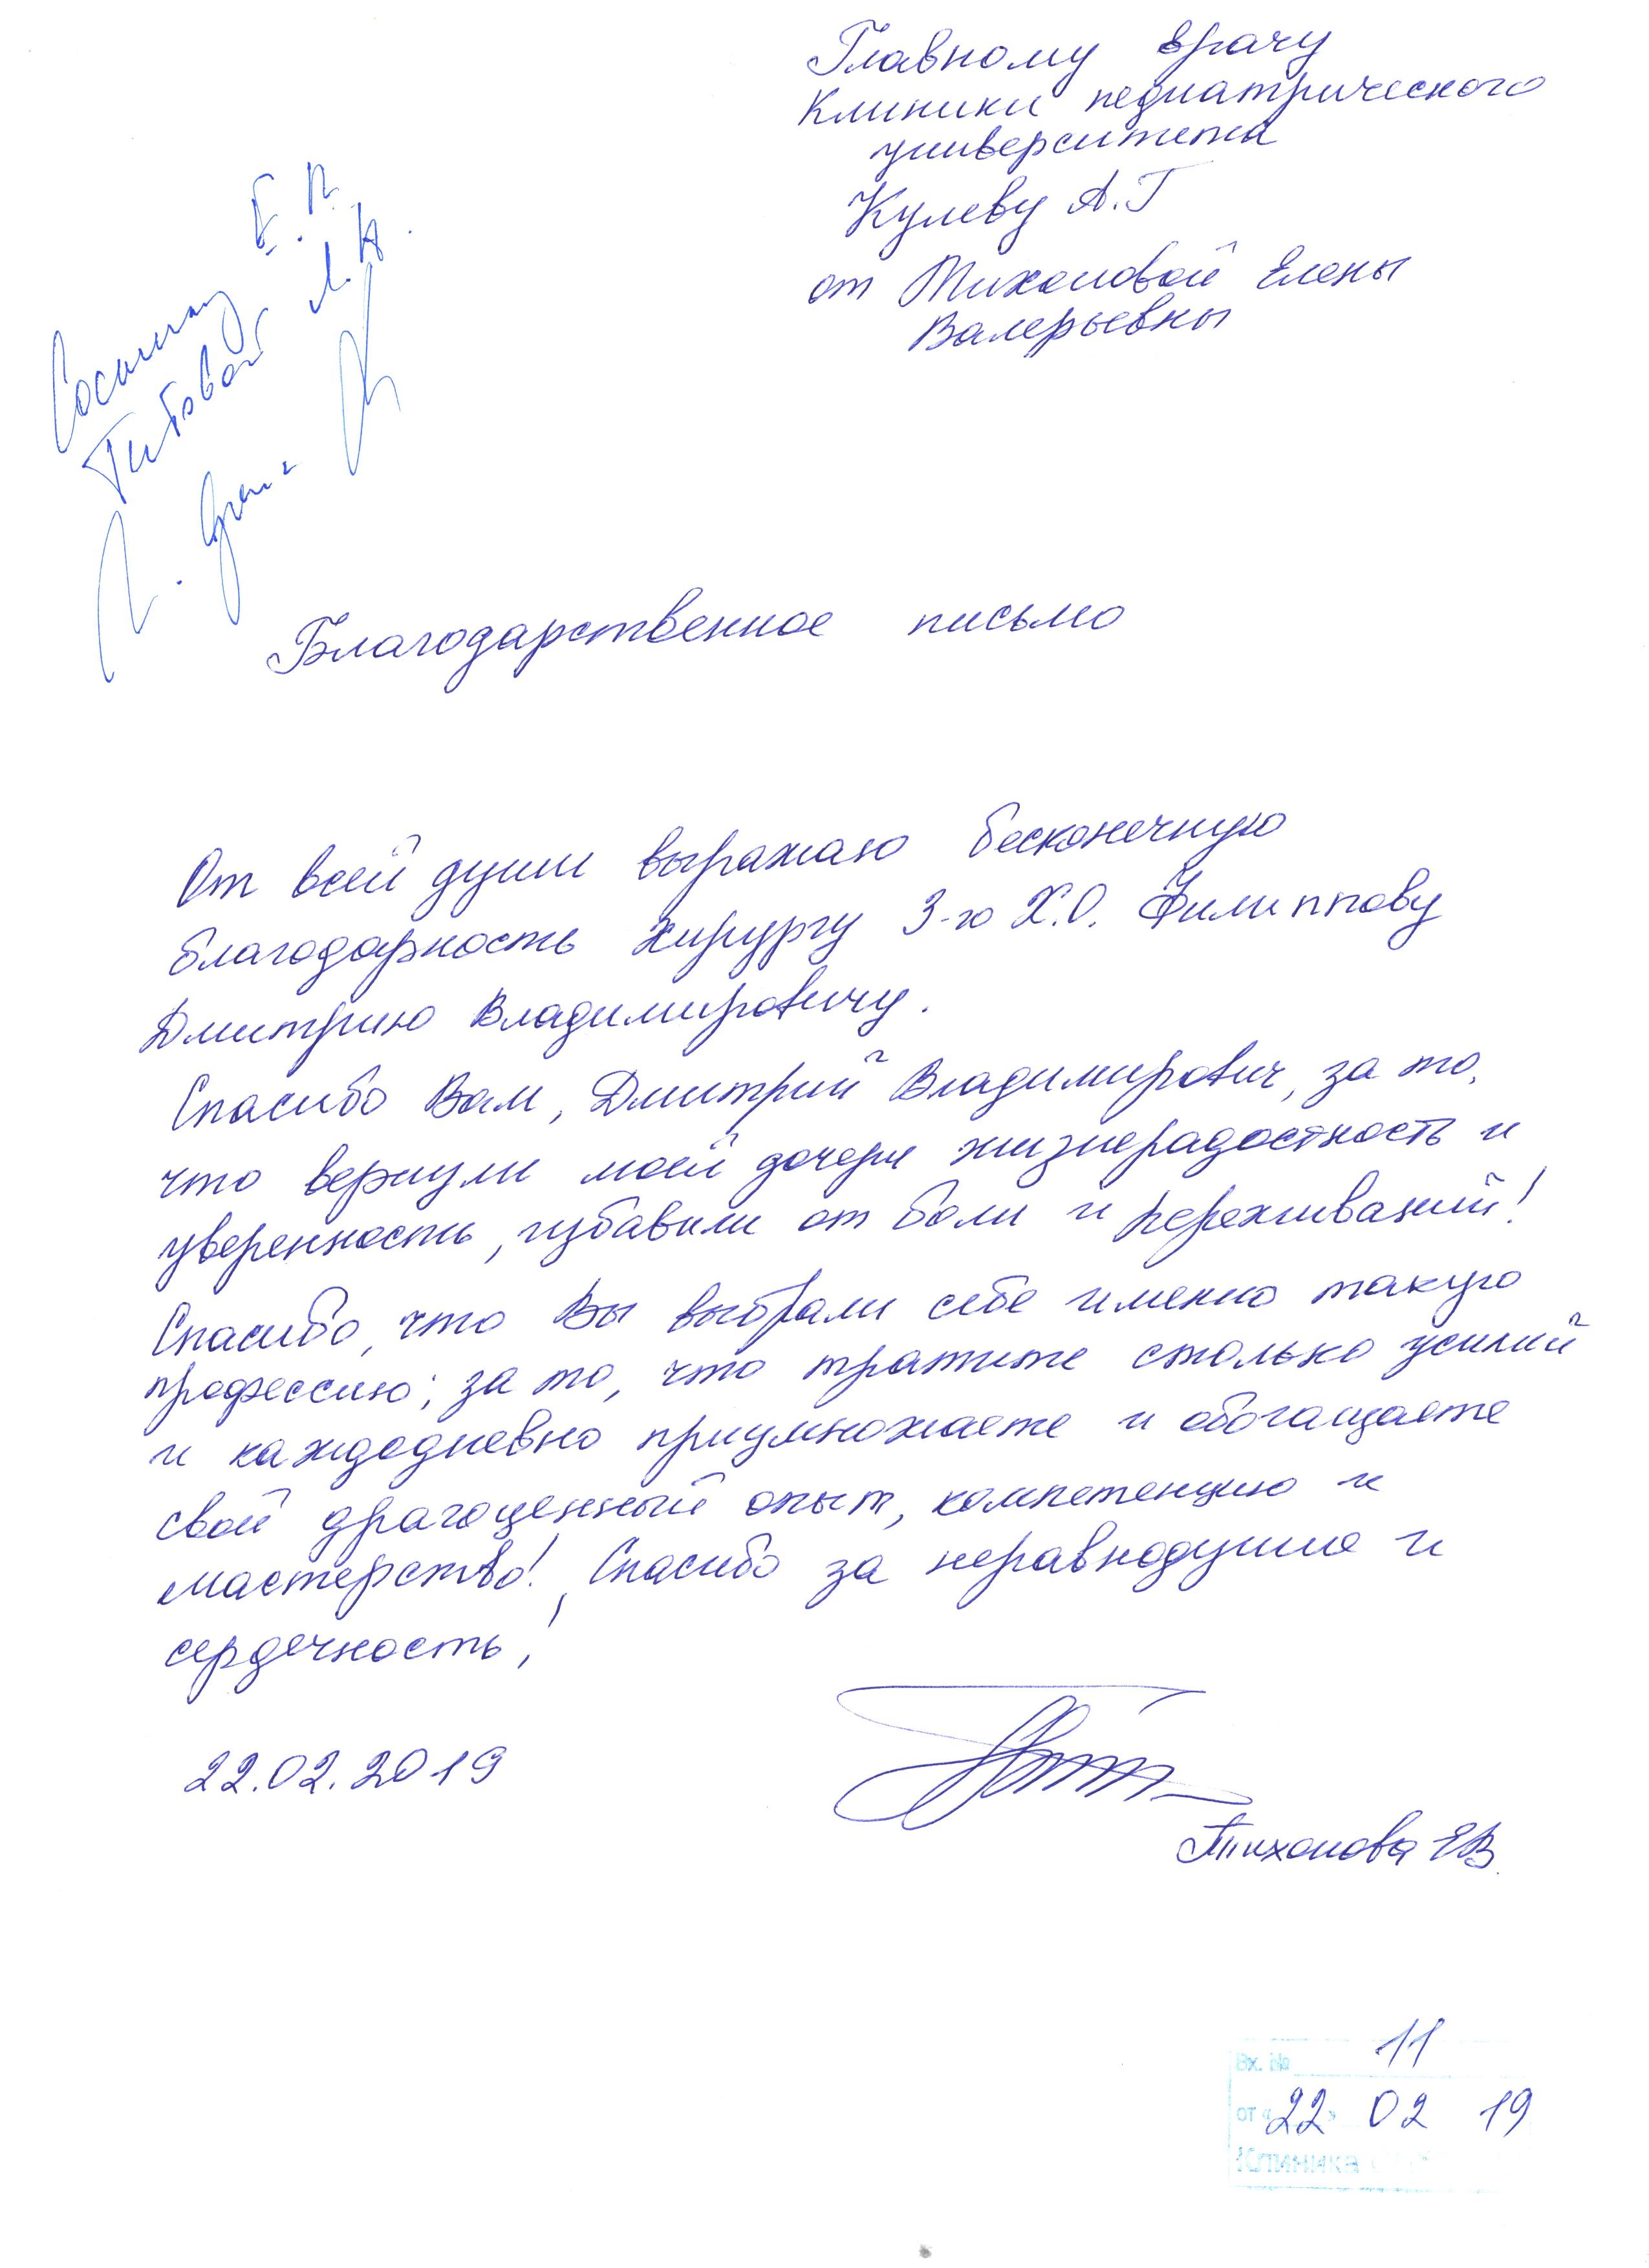 Главному врачу
Клиники педиатрического
университета
Кулеву А.Г
от Тихоновой Елены
Валерьевны
Титовой Л.А.
Благодарственное письмо
От всей души выражаю бесконечную
благодарность хирургу 3-го Х.О. Филиппову
Дмитрию Владимировичу.
Спасибо Вам, Дмитрий Владимирович, за то,
что вернули моей дочери жизнерадостность и
уверенность, избавили от боли и переживаний!
Спасибо, что Вы выбрали себе именно такую
профессию; за то, что тратите столько усилий
и каждодневно приумножаете и обогащаете
свой драгоценный опыт, компетенцию и
мастерство! Спасибо за неравнодушие и
сердечность!
22.02.2019
Тихонова ЕВ.
Вх. № 11
от «22» 02 19